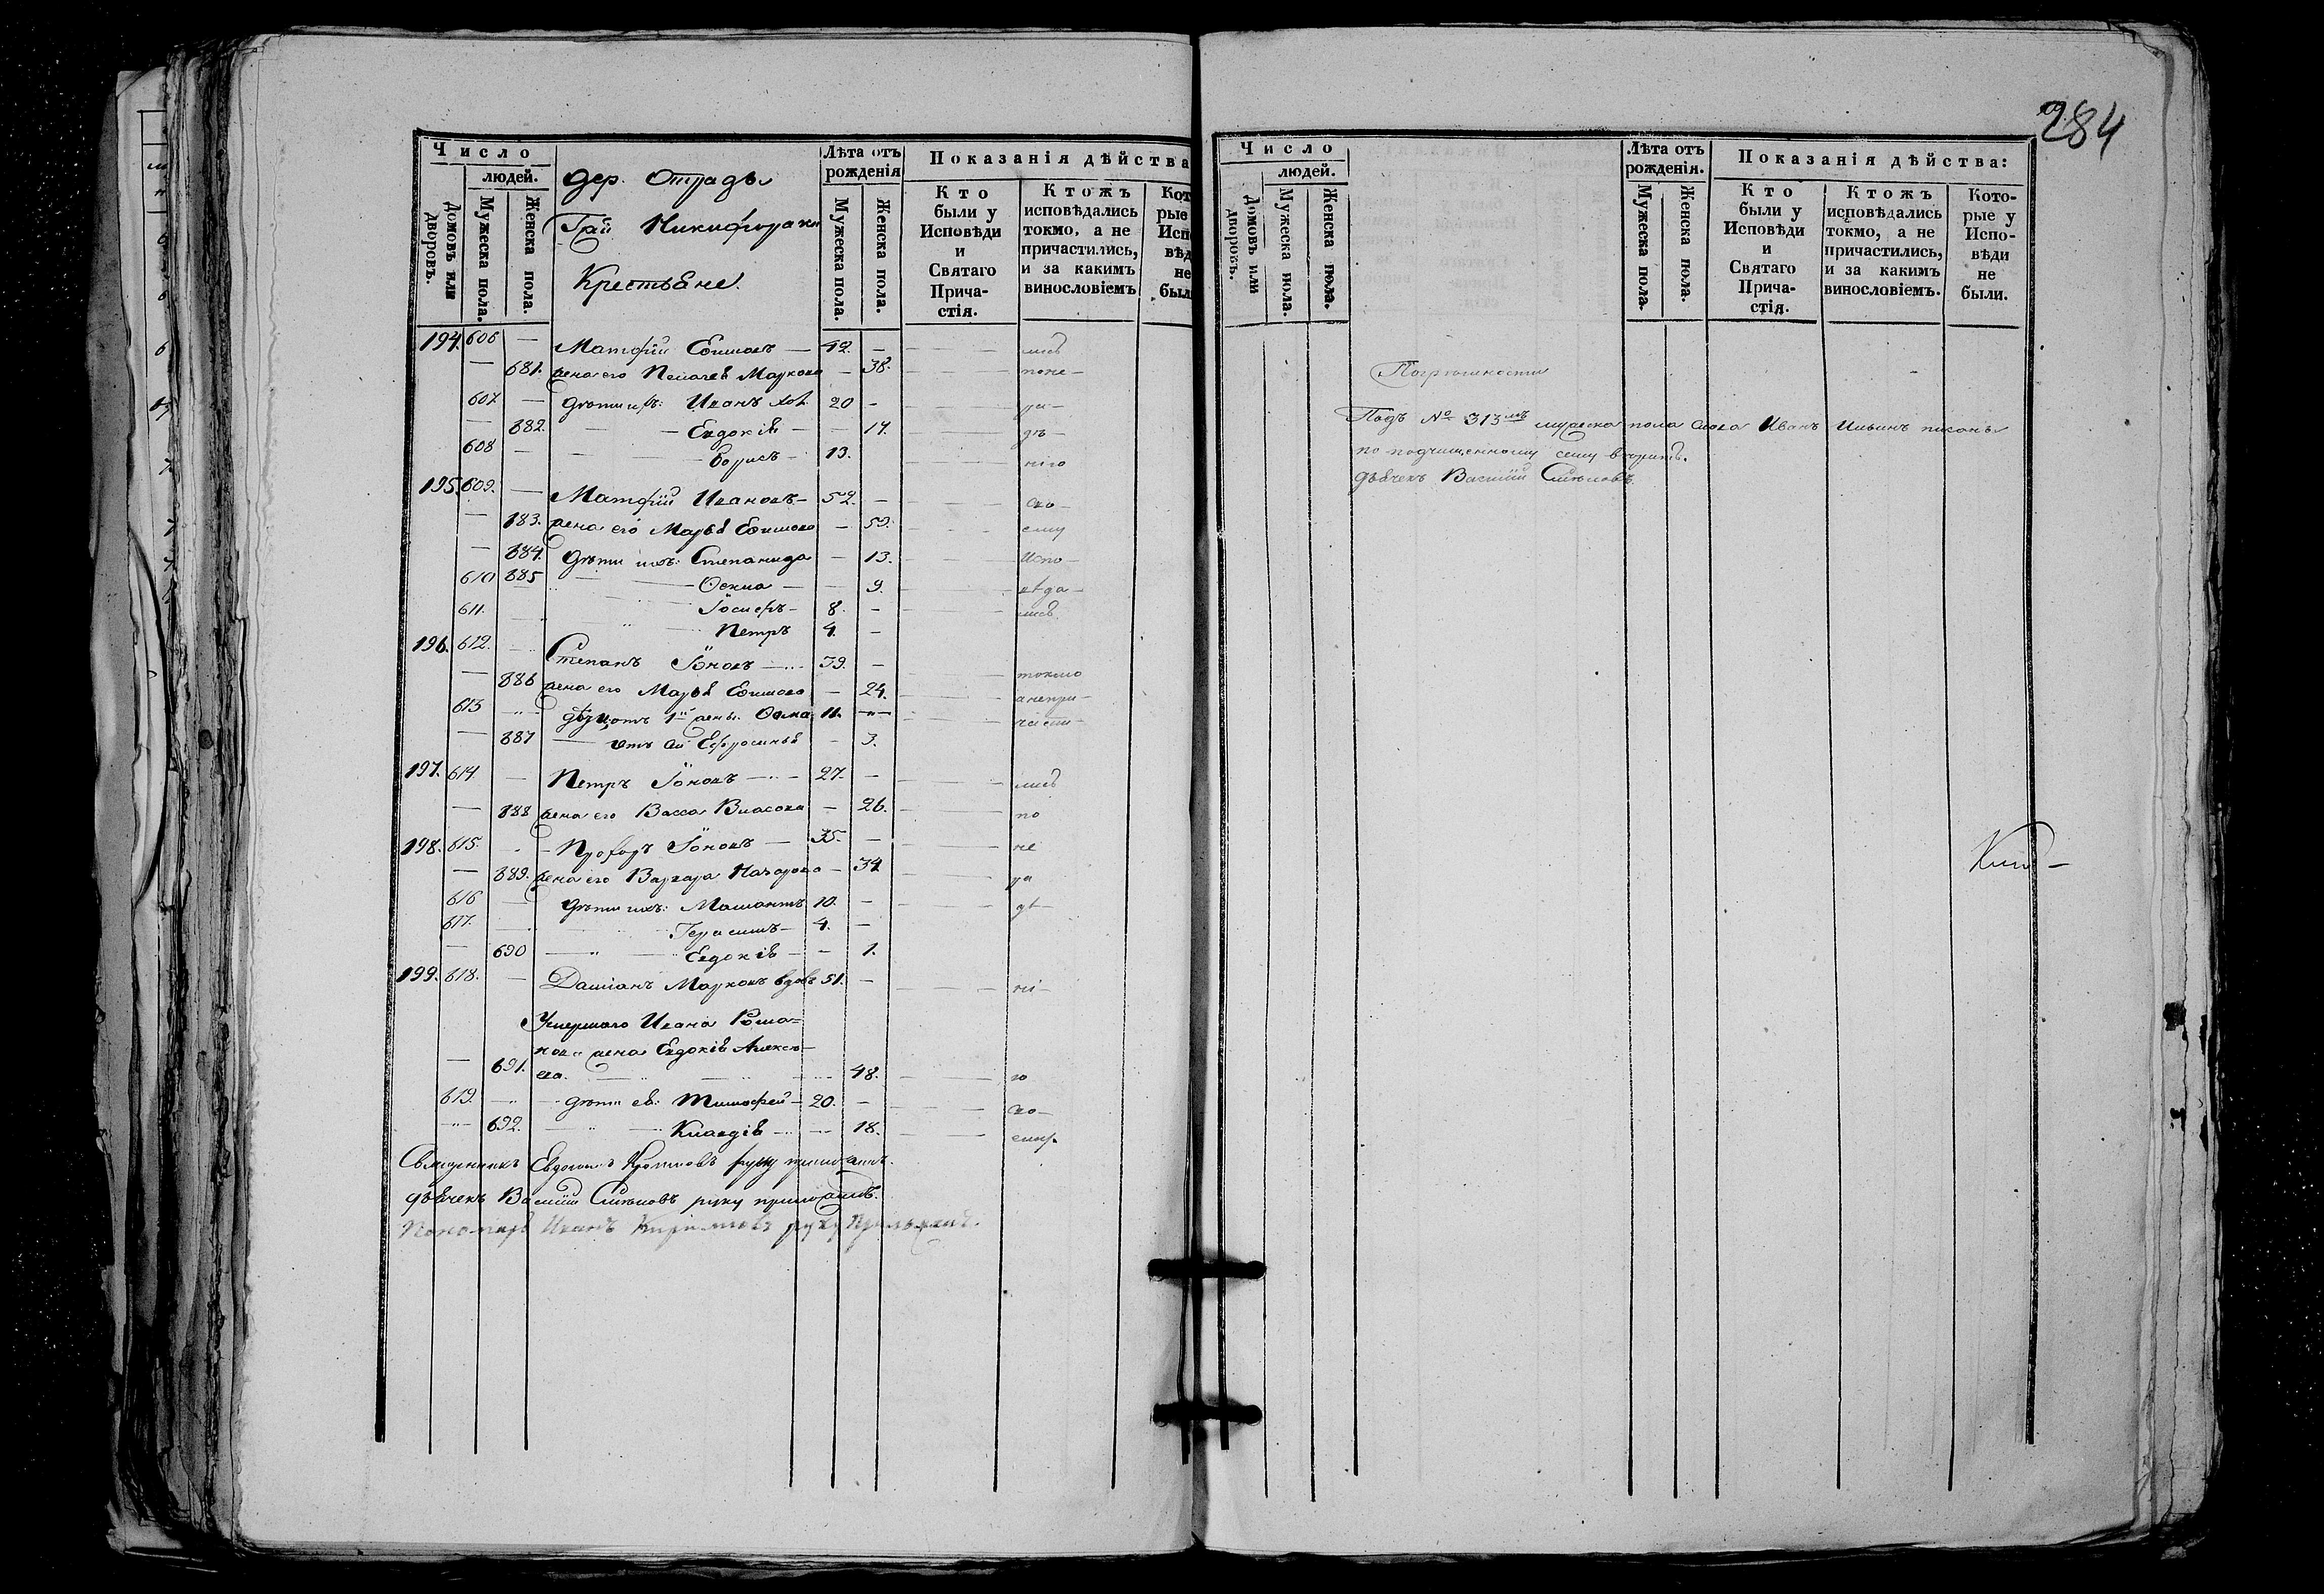 284
Число
людей.
Домовъ или дворовъ.
Мужеска пола.
Женска пола.
дер. Отрады
Гжи Никифораки
Крестьяне.
Лѣта отъ рожденія
Мужеска пола.
Женска пола.
Показанія дѣйства
Кто были у Исповѣди и Святаго Причастія.
Ктожъ исповѣдались токмо, а не причастились, и за какимъ винословіемъ
194. 606 — Матфій Ефимовъ — 42. — лись
— 681. жена его Пелагея Маркова — 38. поне—
607 — дѣти ихъ: Иванъ хол. 20 — ра—
— 682. — — Евдокія — — 17. дѣ—
608 — — Борисъ — 13. нію
195. 609. — Матфій Ивановъ — 52. — сво—
— 683. жена его Марья Ефимова — 59. ему
— 684. дѣти ихъ: Степанида — 13. испо—
610 685 — — Фекла — — 9. вѣда—
611. — Іосифъ — 8. — лись
— Петръ 4. —
196. 612. — Степанъ Іоновъ — 39. —
— 686 жена его Марья Ефимова — 24. токмо
613 — дѣти отъ 1й жены: Фома 11. — анепри—
— 687 — отъ сей Ефросинья — 3. части—
197. 614 — Петръ Іоновъ — 27. — лись
— 688 жена его Васса Власова — 26. по
198. 615. — Прохоръ Іоновъ — 35. — не
— 689. жена его Варвара Назарова — 34 ра
616 — дѣти ихъ: 10. — дѣ—
617. — Герасимъ — 4. —
— 690 — Евдокія — — 1.
199. 618. — Даміанъ Марковъ вдовъ 51. — ні—
Умершаго Ивана Рома=
нова жена Евдокія Алексѣ—
— 691. ева. 48. ю
619. — дѣти ея: Тимофей — 20. — сво—
— 692. — Клавдія — — 18. ему.
Священникъ руку приложилъ.
дьячекъ Василій руку приложилъ.
Пономарь Иванъ Кириловъ руку приложилъ.
Число
людей.
Домовъ или дворовъ.
Мужеска пола.
Женска пола.
Лѣта отъ рожденія.
Мужеска пола.
Женска пола.
Показанія дѣйства:
Кто были у Исповѣди и Святаго Причастія.
Ктожъ исповѣдались токмо, а не причастились, и за какимъ винословіемъ.
Которые у Исповѣди не были.
Погрѣшности
Подъ № 313мъ мужеска пола слова Иванъ Ильинъ писаны
по подчищенному сему вѣрить.
дьячекъ Василій